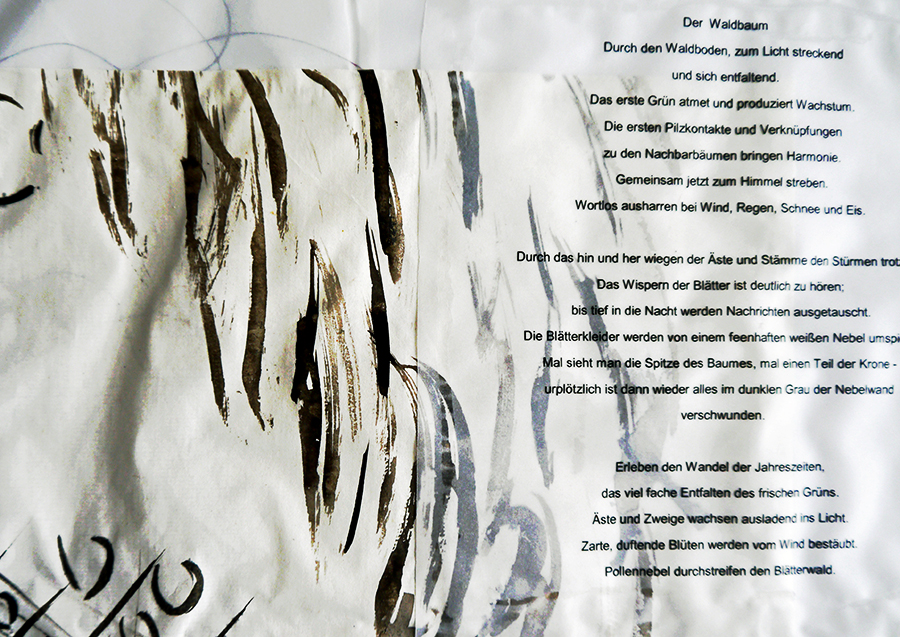 Der Waldbaum
Durch den Waldboden, zum Licht streckend
und sich entfaltend.
Das erste Grün atmet und produziert Wachstum.
Die ersten Pilzkontakte und Verknüpfungen
zu den Nachbarbäumen bringen Harmonie.
Gemeinsam jetzt zum Himmel streben.
Wortlos ausharren bei Wind, Regen, Schnee und Eis.
Durch das hin und her wiegen der Äste und Stämme den Stürmen
Das Wispern der Blätter ist deutlich zu hören;
bis tief in die Nacht werden Nachrichten ausgetauscht.
Die Blätterkleider werden von einem feenhaften weißen Nebel
Mal sieht man die Spitze des Baumes, mal einen Teil der Krone -
urplötzlich ist dann wieder alles im dunklen Grau der Nebelwand
verschwunden.
Erleben den Wandel der Jahreszeiten,
das viel fache Entfalten des frischen Grüns.
Äste und Zweige wachsen ausladend ins Licht.
Zarte, duftende Blüten werden vom Wind bestäubt.
Pollennebel durchstreifen den Blätterwald.